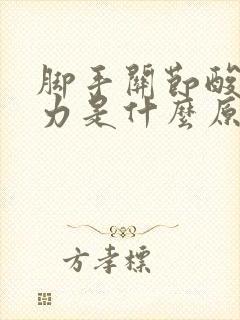 脚手關節酸
力是什麼原
方孝標